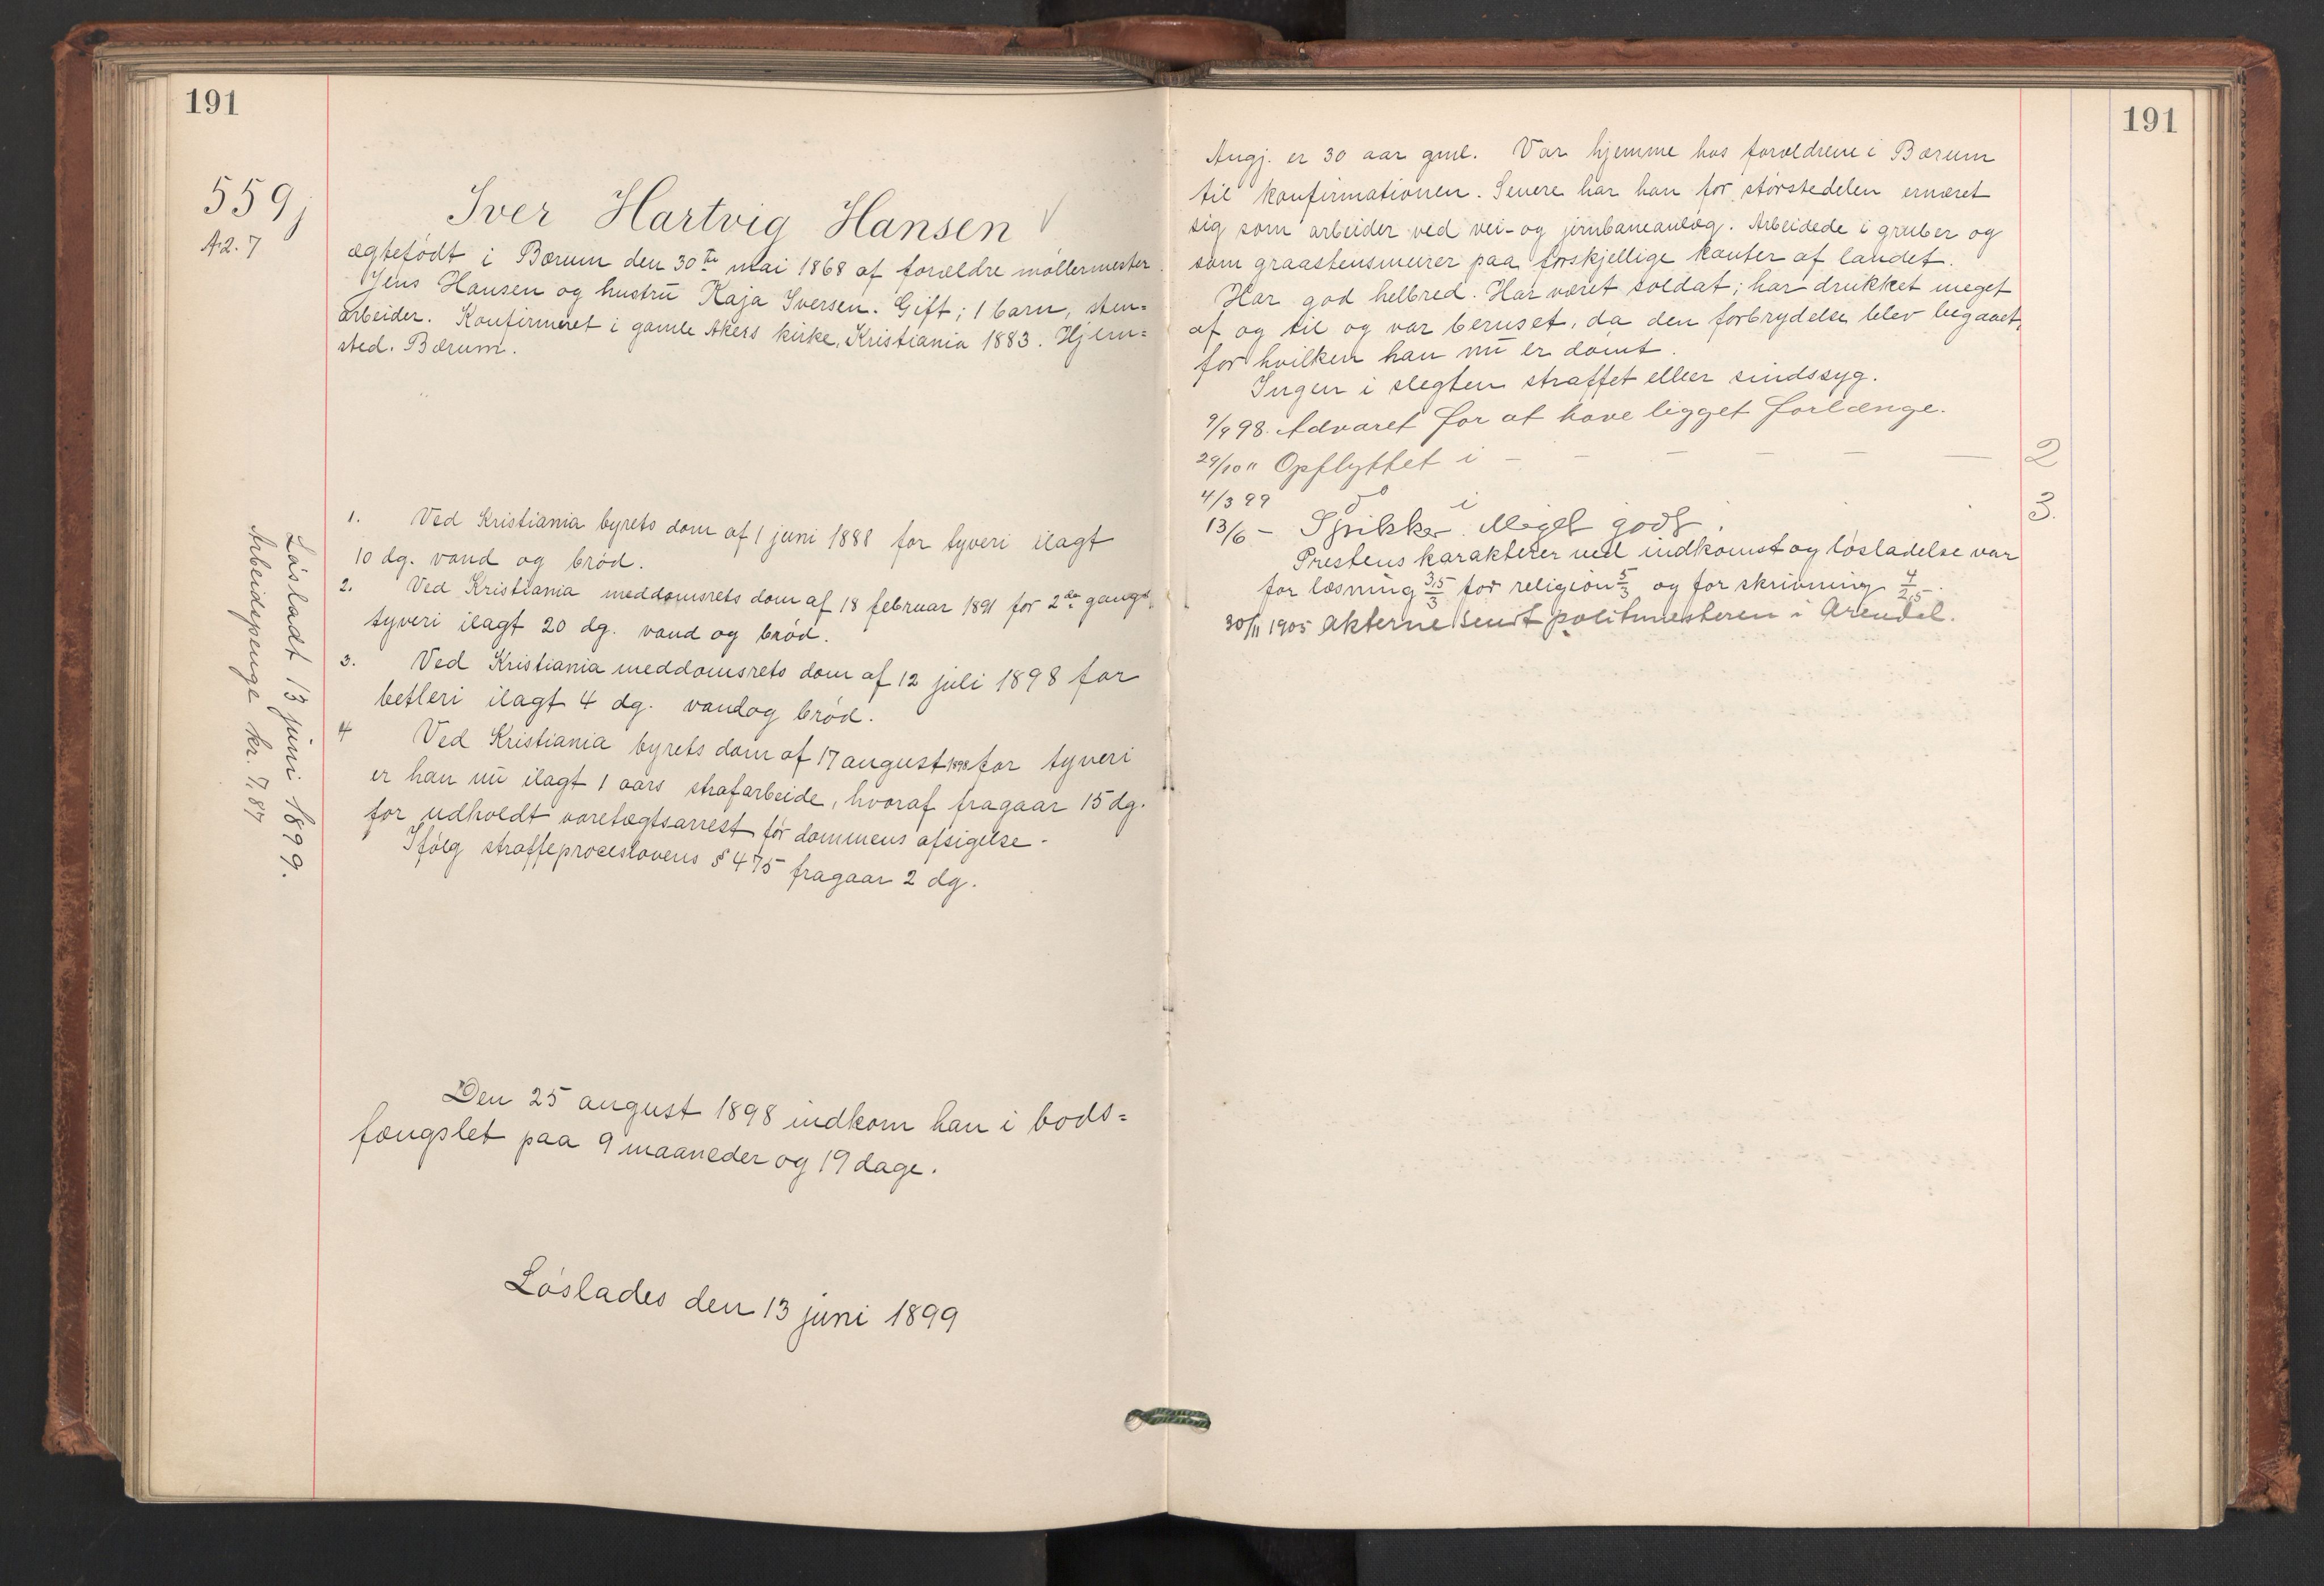 191
559j
A.2.7
Iver Hartvig Hansen
ægtefødt i Bærum den 30te mai 1868 af forældre møllermester
Jens Hansen og hustru Kaja Iversen. Gift; 1 barn, sten-
arbeider. Konfirmeret i gamle Akers kirke, Kristiania 1883. Hjem-
sted. Bærum.
1. Ved Kristiania byrets dom af 1 juni 1888 for tyveri ilagt
10 dg. vand og brød.
2. Ved Kristiania meddomsrets dom af 18 februar 1891 for 2den gangs
tyveri ilagt 20 dg. vand og brød.
3. Ved Kristiania meddomsrets dom af 12 juli 1898 for
betleri ilagt 4 dg. vand og brød.
4 Ved Kristiania byrets dom af 17 august 1898 for tyveri
er han nu ilagt 1 aars strafarbeide, hvoraf fragaar 15 dg.
for udholdt varetægtsarrest før dommens afsigelse.
Ifølg straffeproceslovens § 475 fragaar 2 dg.
Løsladt 13 juni 1899.
Arbeidspenge kr. 7,87
Den 25 august 1898 indkom han i bods-
fængslet paa 9 maaneder og 19 dage.
Løslades den 13 juni 1899
191
Angj. er 30 aar gml. Var hjemme hos forældrene i Bærum
til konfirmationen. Senere har han for størstedelen ernæret
sig som arbeider ved vei- og jernbaneanlæg. Arbeidede i gruber og
som graastensmurer paa forskjellige kanter af landet.
Har god helbred. Har været soldat; har drukket meget
af og til og var beruset, da den forbrydelse blev begaaet,
for hvilken han nu er dømt.
Ingen i slegten straffet eller sindssyg.
9/9 98. Advaret for at have ligget forlænge.
29/10 " Opflyttet i – – – – – — 2
4/3 99 do i 3.
13/6 – Spikker. Meget godt.
Prestens karakterer ved indkomst og løsladelse var
for læsning 3,5/3 for religion 5/3 og for skrivning 4/2,5.
30/11 1905 Akterne sendt politimesteren i Arendal.